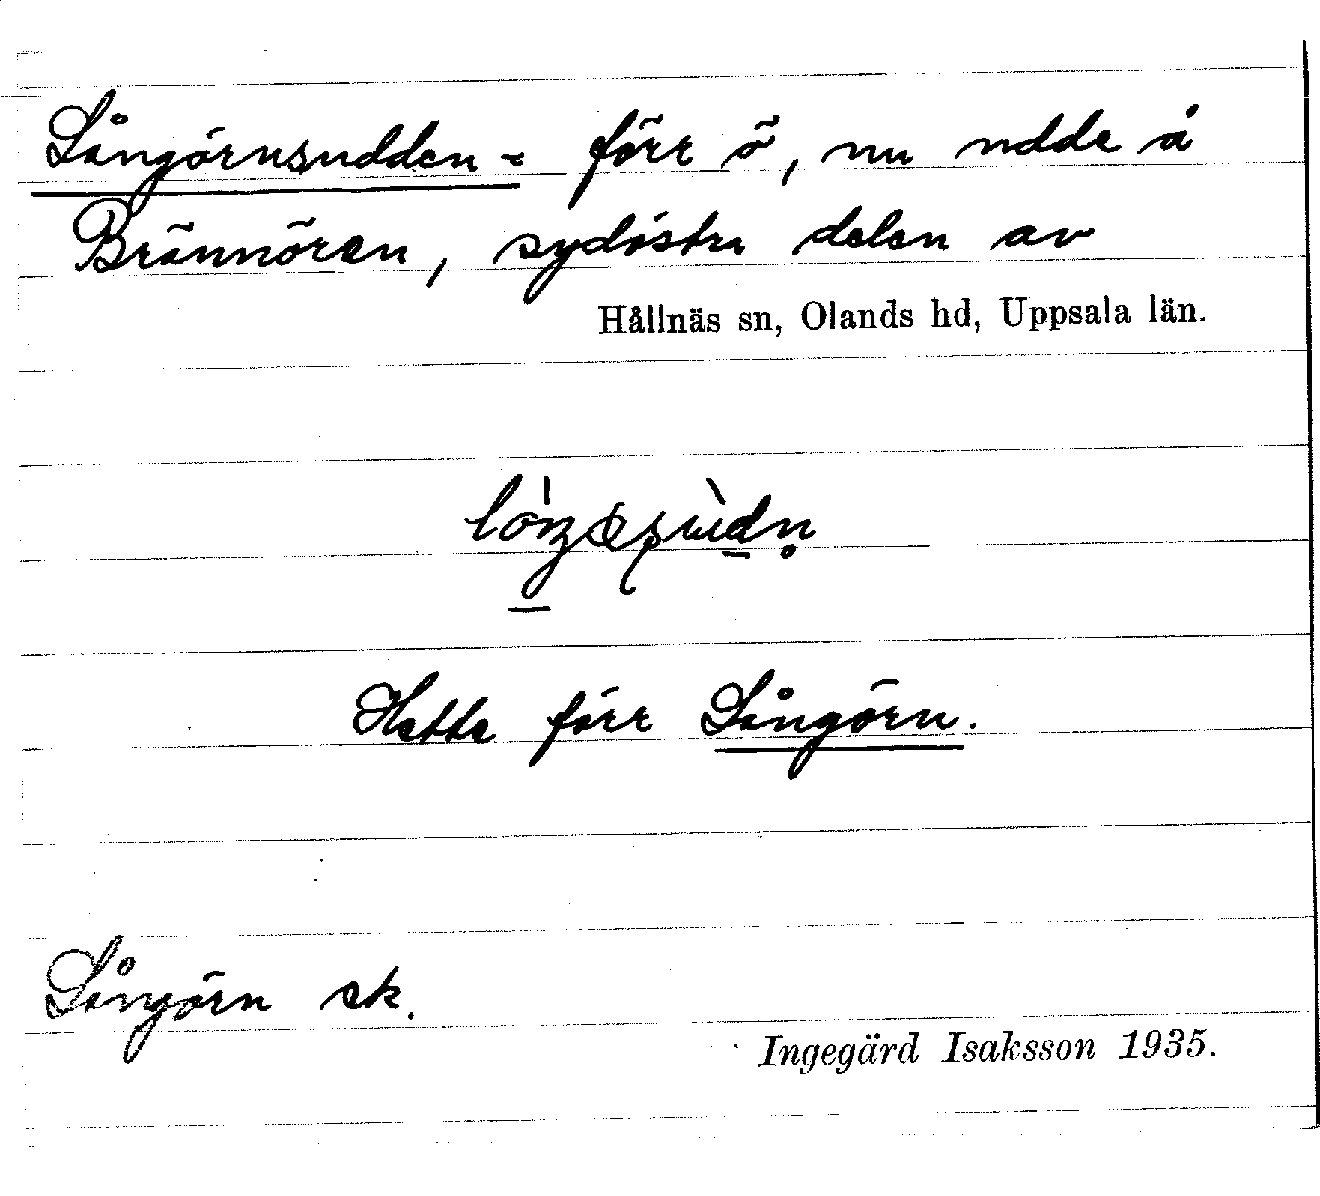 Långörnsudden = förr ö, nu udde å
Brännören, sydöstra delen av
Hållnäs sn, Olands hd, Uppsala län.
Hette förr Långörn.
Långörn ek.
Ingegärd Isaksson 1935.